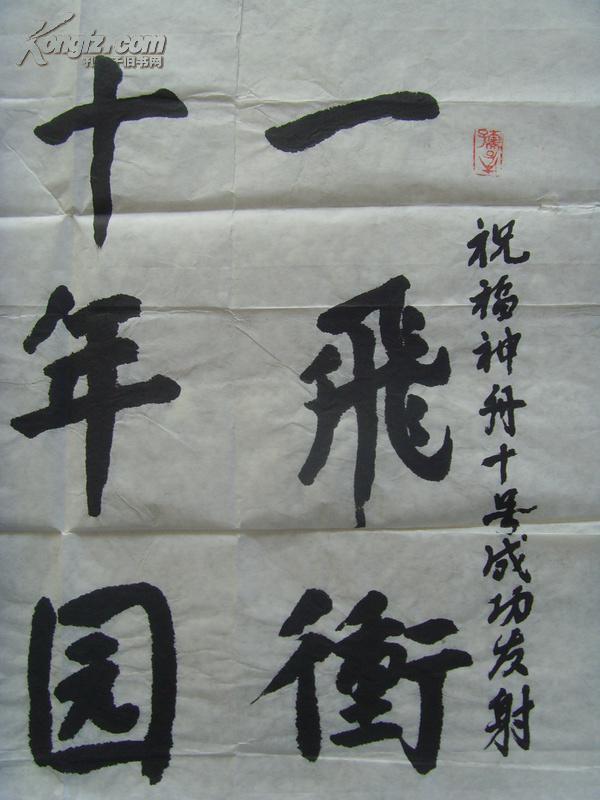 祝福神舟十号成功发射
一飛衝
十年园
Kongfz.com
孔夫子旧书网